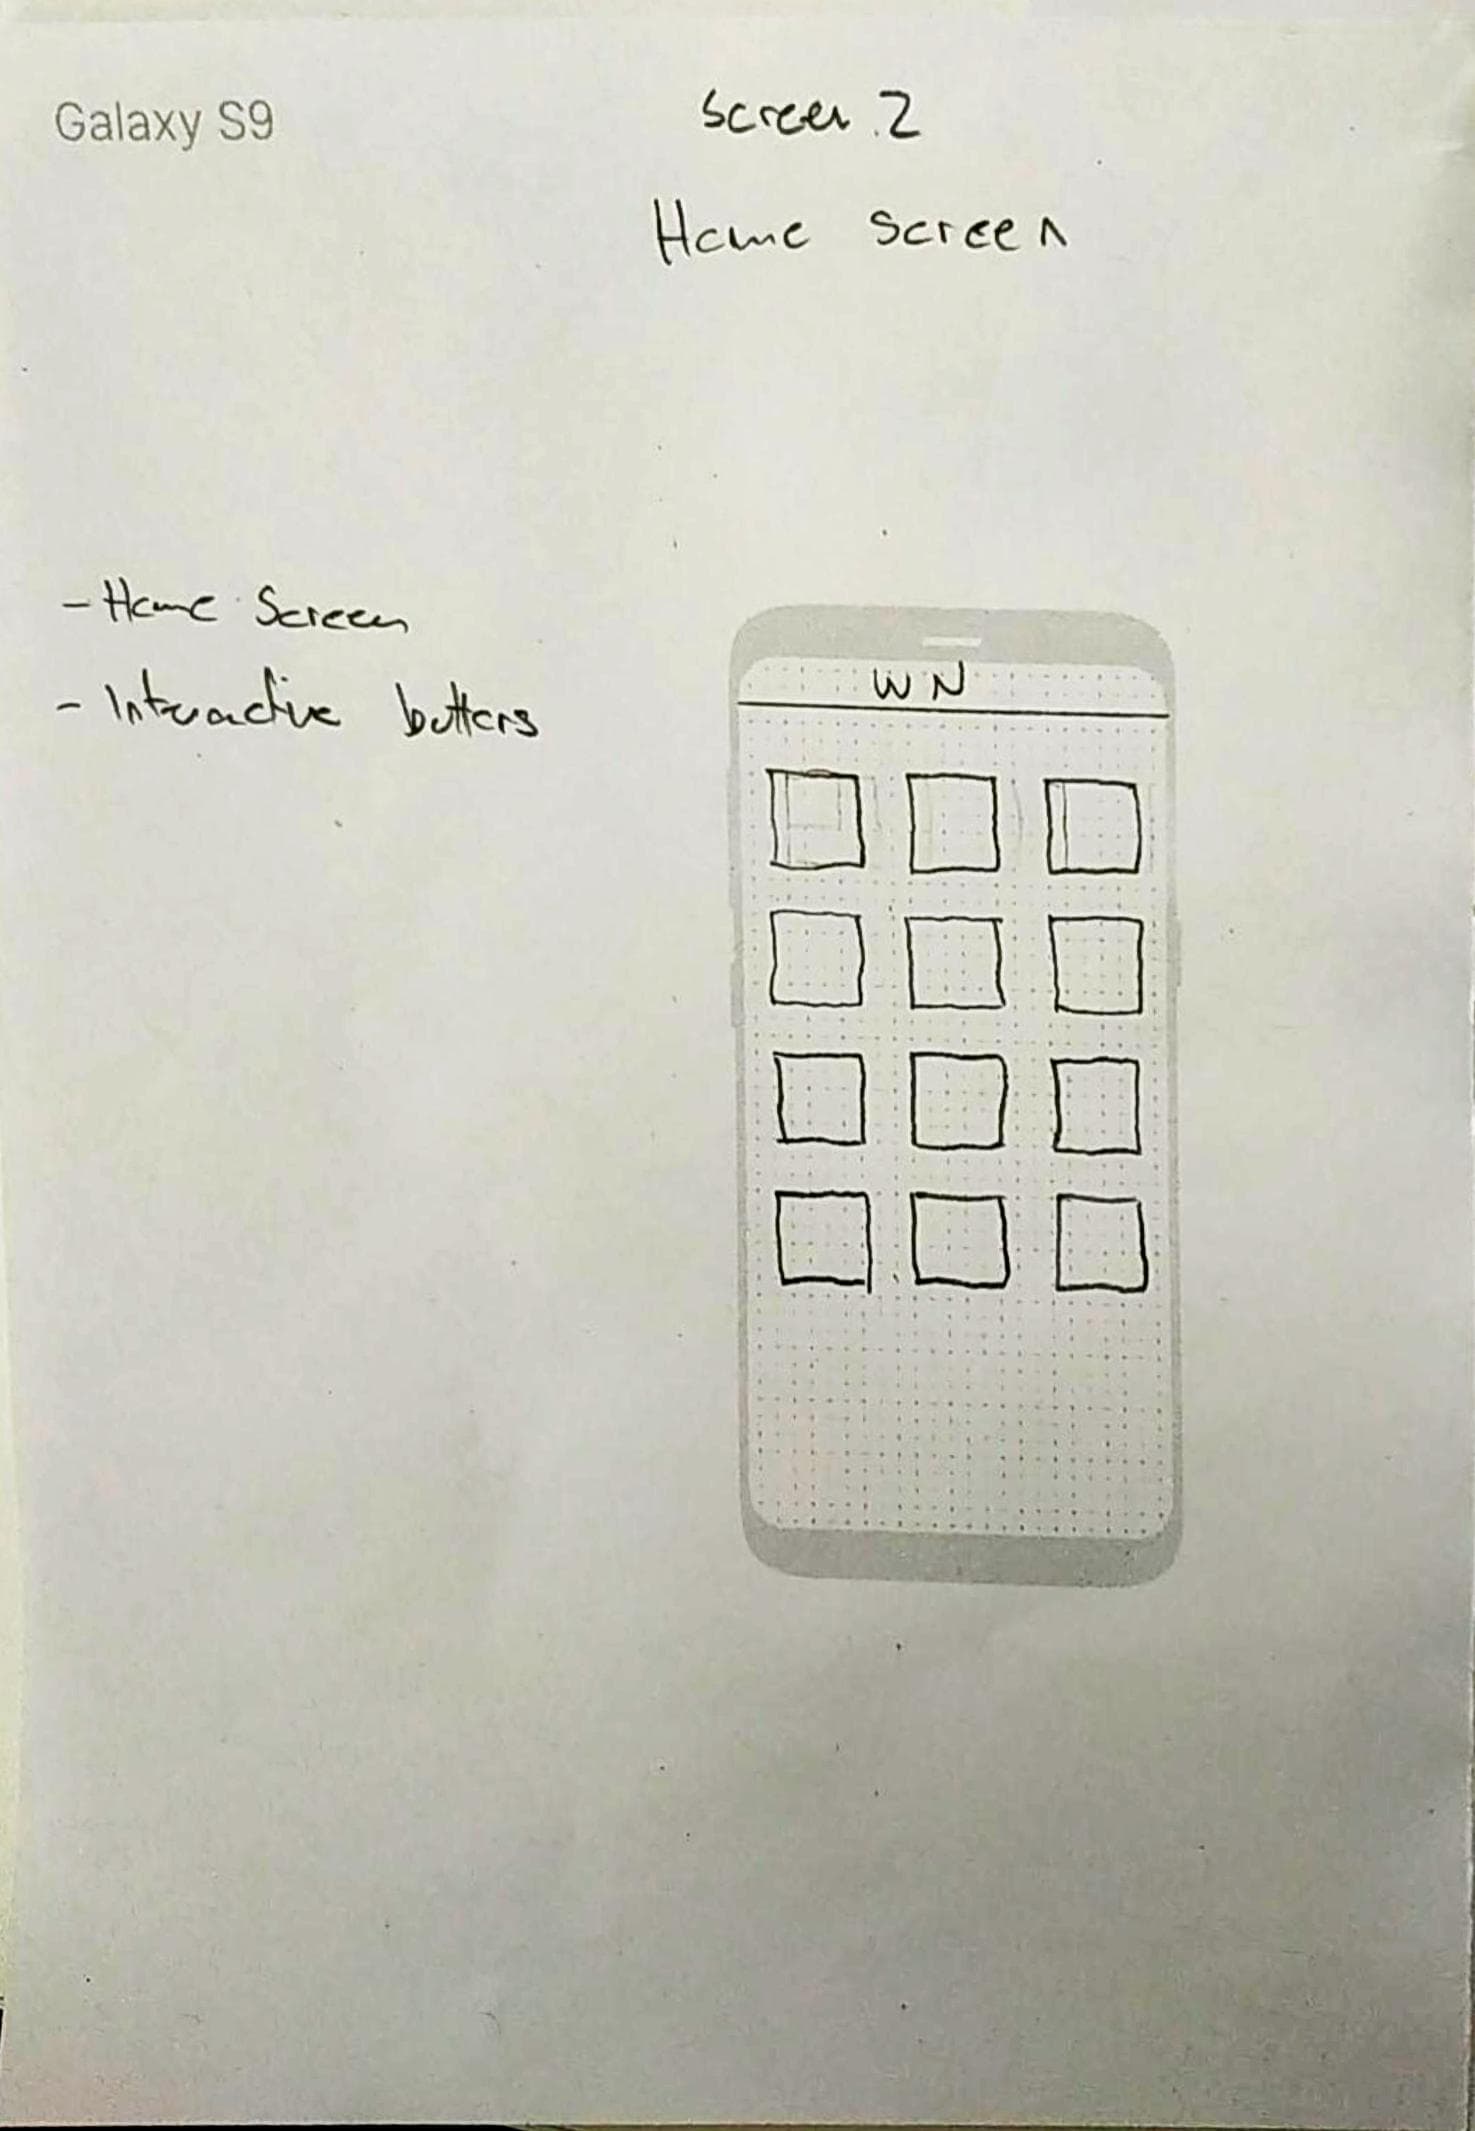 Galaxy S9
Screen 2
Home Screen
- Home Screen
- Interactive buttons
WN